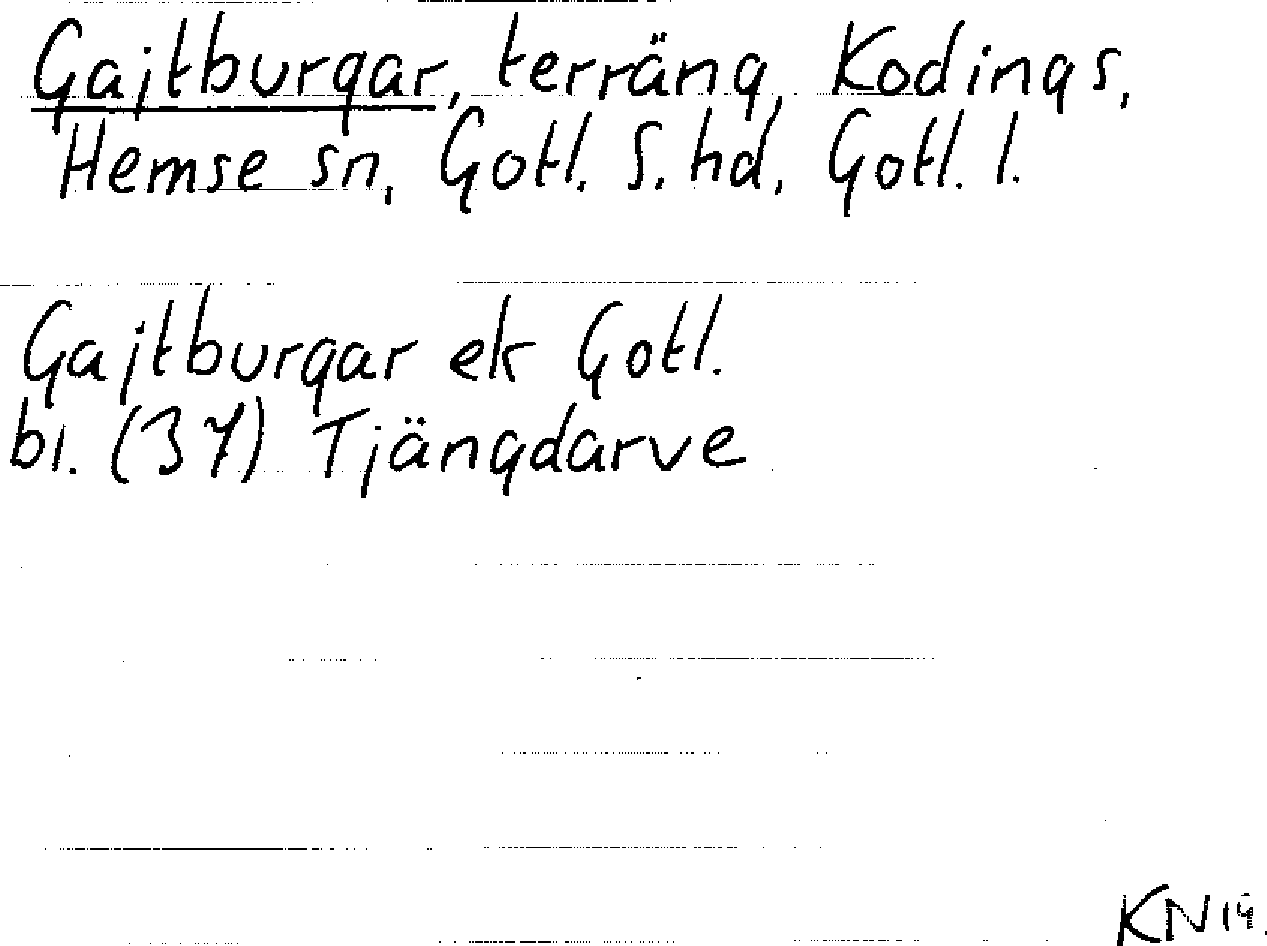 Gajtburgar, terräng, Kodings,
Hemse sn, Gotl. S. hd, Gotl. l.
Gajtburgar ek Gotl.
bl. (37) Tjängdarve
KN 19.